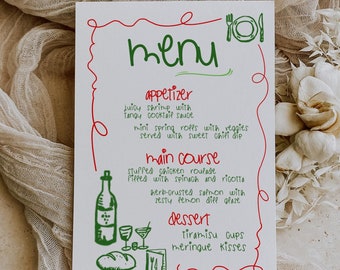 menu
appetizer
juicy shrimp with
tangy cocktail sauce
mini spring rolls with veggies
served with sweet chili dip
main course
stuffed chicken roulade
filled with spinach and ricotta
herb-crusted salmon with
zesty lemon dill glaze
dessert
tiramisu cups
meringue kisses